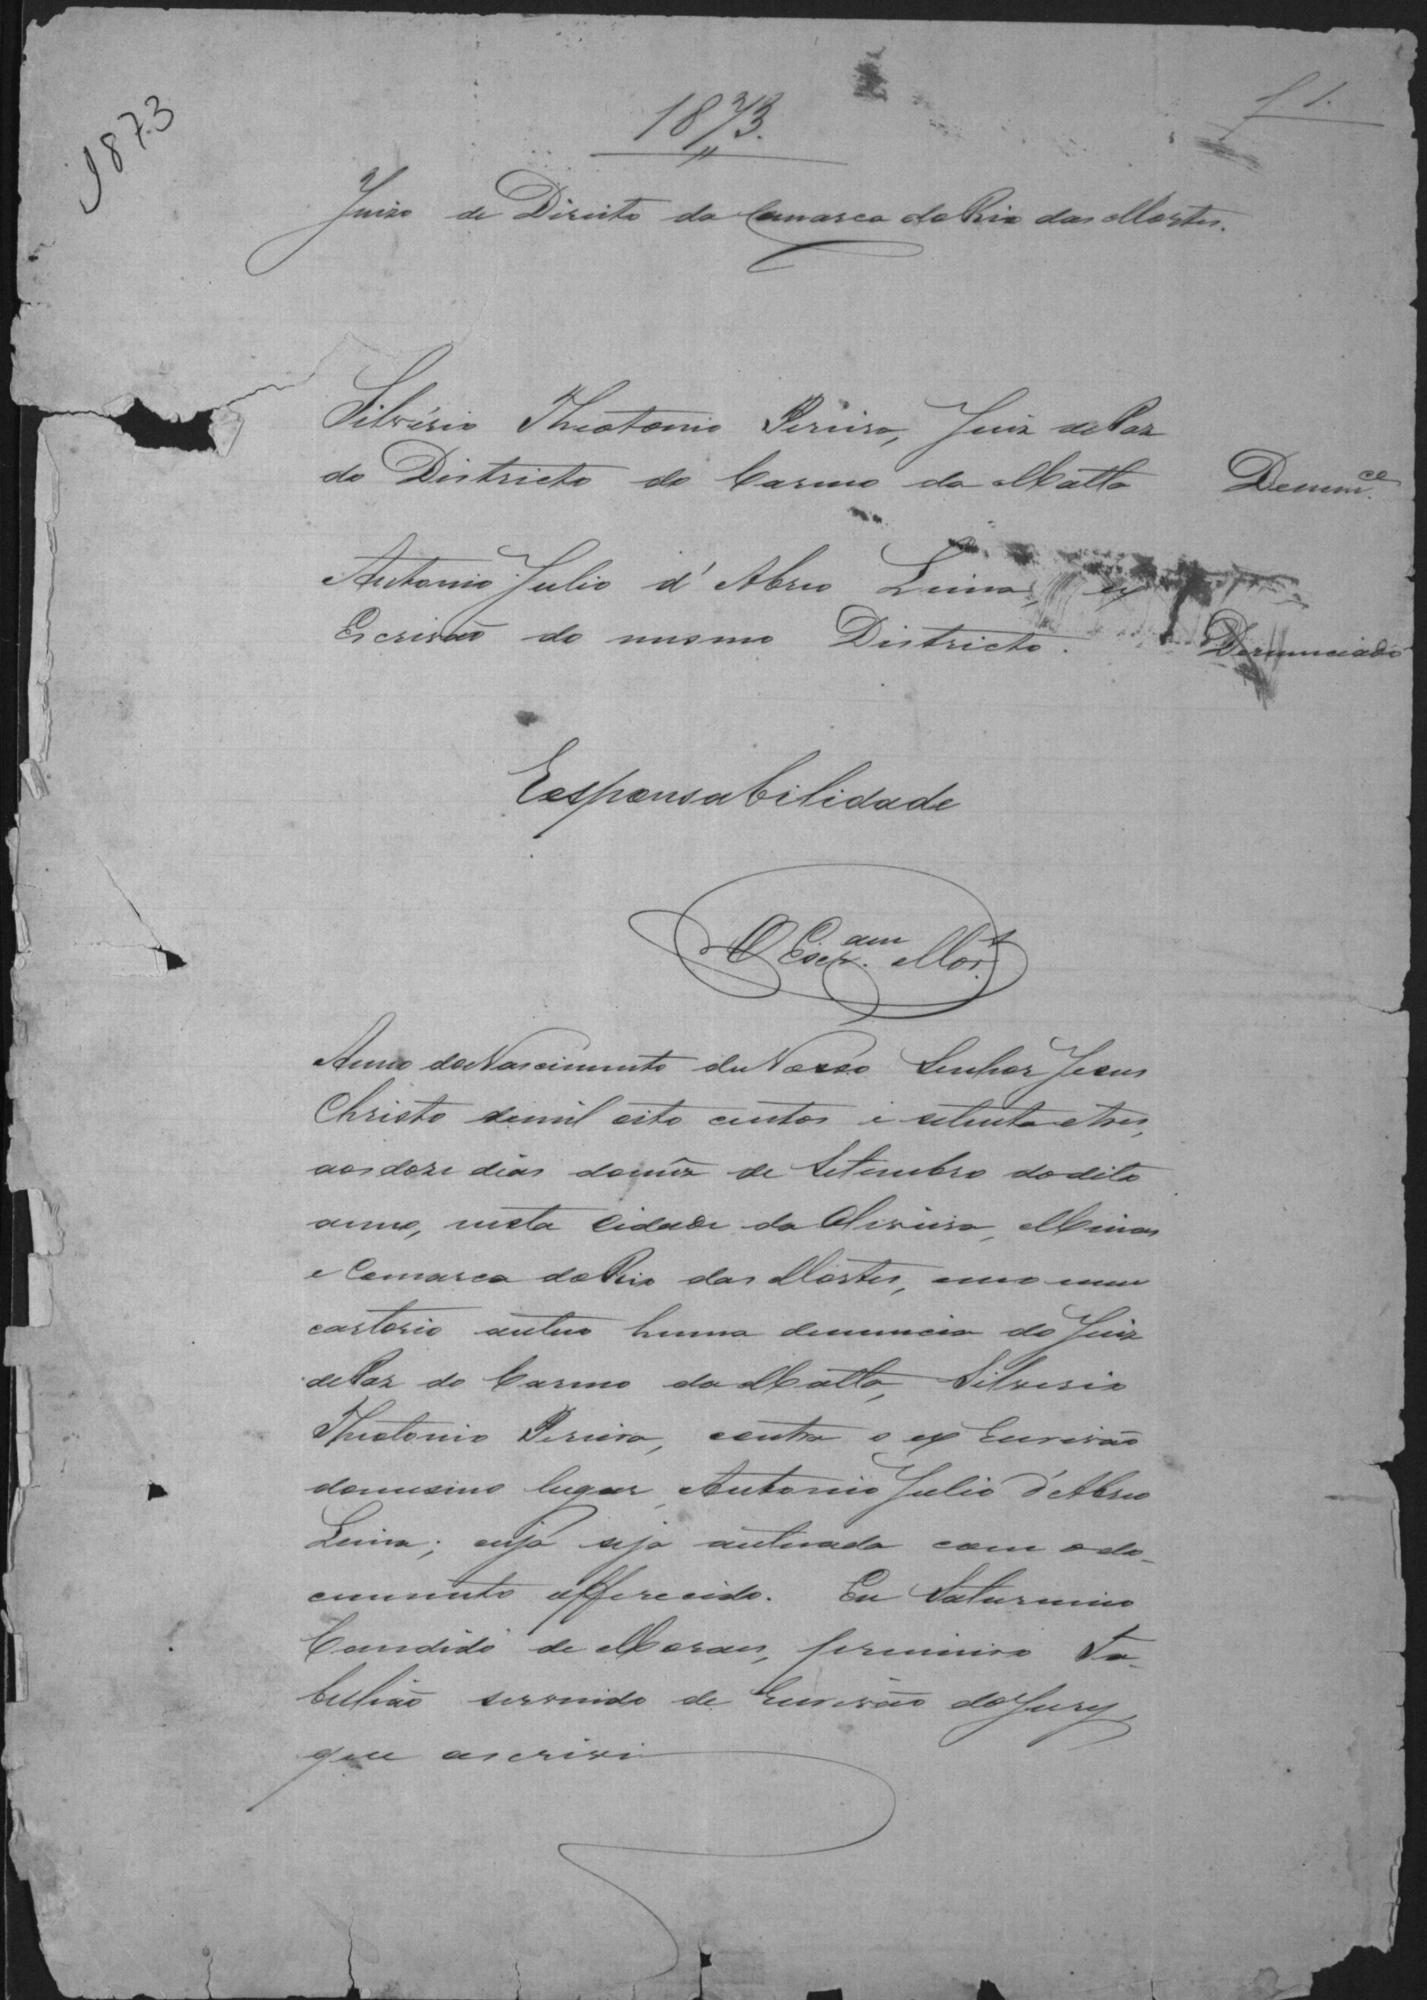 1873
1873.
f 1.
Juizo de Direito da Comarca do Rio das Mortes.
Silvério Theotonio Pereira, Juiz de Paz
do Districto do Carmo da Matta Denunce.
Antonio Julio d'Abreu Lima, ex
Escrivaõ do mesmo Districto. Denunciado
Responsabilidade
O Escram. Mor.
Anno do Nascimento de Nosso Senhor Jesus
Christo de mil oito centos e setenta e tres,
aos doze dias do mez de Setembro do dito
anno, nesta Cidade da Oliveira, Minas
e Comarca do Rio das Mortes, em o meu
cartorio autuo huma denuncia do Juiz
de Paz do Carmo da Matta, Silverio
Theotonio Pereira, contra o ex Escrivaõ
do mesmo lugar, Antonio Julio d'Abreu
Lima; cuja seja autuada com o do-
cumento offerecido. Eu Saturnino
Candido de Moraes, primeiro Ta-
belião servindo de Escrivão do Jury,
que escrivi